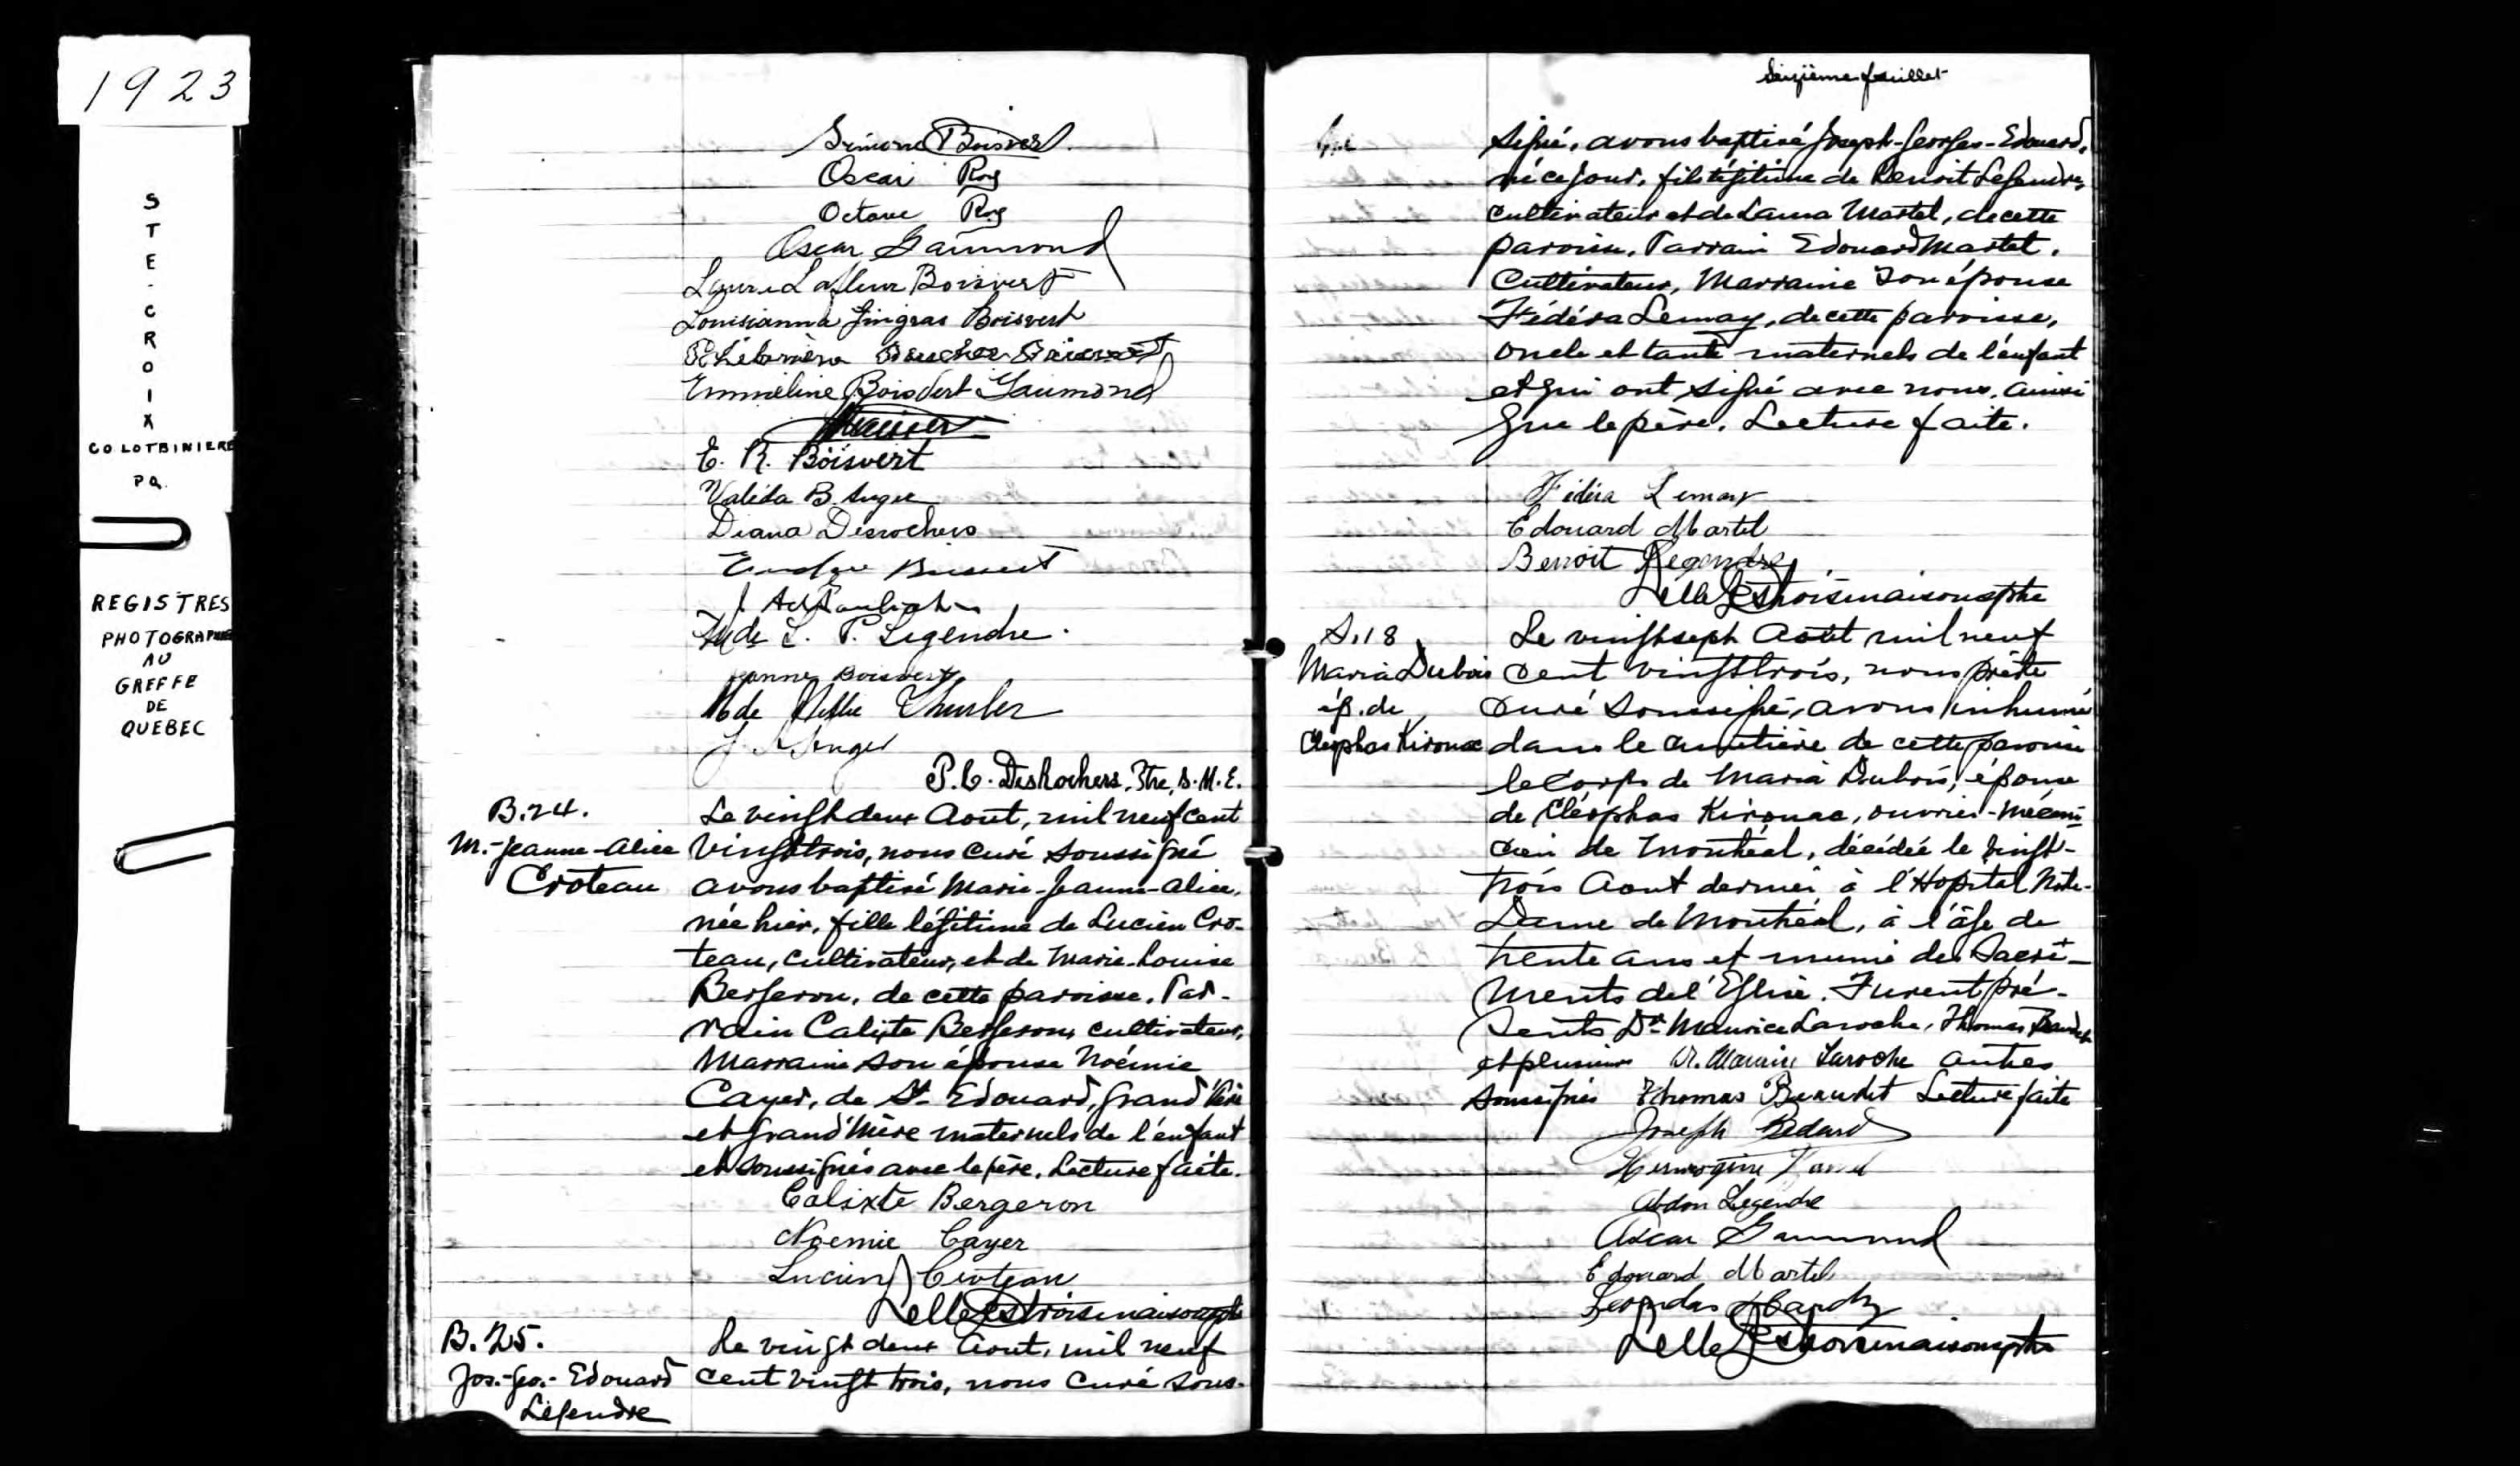 1923
STE-CROIX
CO LOTBINIERE
PQ.
REGISTRES
PHOTOGRAPHIES
AU
GREFFE
DE
QUEBEC
Simone Boisvert
Oscar Roy
Octave Roy
Oscar Gaumond
Laure Lafleur Boisvert
Louisianna Gingras Boisvert
Boisvert
Emméline Boisvert Gaumond
E. R. Boisvert
Valéda B. Auger
Diana Desrochers
Boisvert
Mde L. P. Legendre.
Jeanne Boisvert
Mde Nellie Thurber
J. A Auger
P. C. DesRochers, Ptre, S.M.E.
B.24.
M.-Jeanne-Alice
Croteau
Le vingt deux Aout, mil neuf cent
vingt trois, nous curé soussigné
avons baptisé Marie-Jeanne-Alice,
née hier, fille légitime de Lucien Cro-
teau, cultivateur, et de Marie-Louise
Bergeron, de cette paroisse. Par-
rain Calixte Bergeron, cultivateur,
Marraine son épouse Noémie
Cayer, de St. Edouard, grand'Père
et grand'Mère maternels de l'enfant
et soussignés avec le père. Lecture faite.
Calixte Bergeron
Noemie Cayer
Lucien Croteau
Lelles Destroismaisons ptre
B.25.
Jos.-Geo.- Edouard
Legendre
Le vingt deux Aout, mil neuf
cent vingt trois, nous Curé sous-
Seizième feuillet
signé, avons baptisé Joseph-Georges-Edouard,
né ce jour, fils légitime de Benoit Legendre,
cultivateur et de Laura Martel, de cette
paroisse. Parrain Edouard Martel,
Cultivateur, Marraine son épouse
Fédéra Lemay, de cette paroisse,
oncle et tante maternels de l'enfant
et qui ont signé avec nous, ainsi
que le père. Lecture faite.
Fédéra Lemay
Edouard Martel
Benoit Legendre
Lelles Destroismaisons ptre
S.18
Maria Dubois
ép. de
Cléophas Kirouac
Le vingt sept Août mil neuf
cent vingt trois, nous prêtre
curé soussigné, avons inhumé
dans le cimetière de cette paroisse
le corps de Maria Dubois, épouse
de Cléophas Kirouac, ouvrier-mécani-
cien de Montréal, décédée le vingt-
trois Aout dernier à l'Hopital Notre-
Dame de Montréal, à l'âge de
trente ans et munie des Sacre-
ments de l'Eglise. Furent pré-
sents Dr Maurice Laroche, Thomas Beaudet
et plusieurs Dr. Maurice Laroche autres
soussignés Thomas Beaudet Lecture faite
Joseph Bedard
Hermogène
Abdon Legendre
Oscar Gaumond
Edouard Martel
Léonidas Hardy
Lelles Destroismaisons ptre